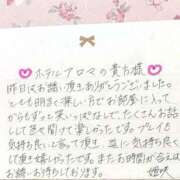 ホテルアロマの貴方様
昨日はお誘い頂きありがとうございました。
とても明るく楽しい方でお部屋に入って
からもずっと笑いっぱなしでたくさんお話
して色々聞けて楽しかったです。プレイも
気持ち良いと言って頂き、逆に気持ち良く
して頂き嬉しかったです。またお時間が合えば
お誘いお待ちしております。
姫咲